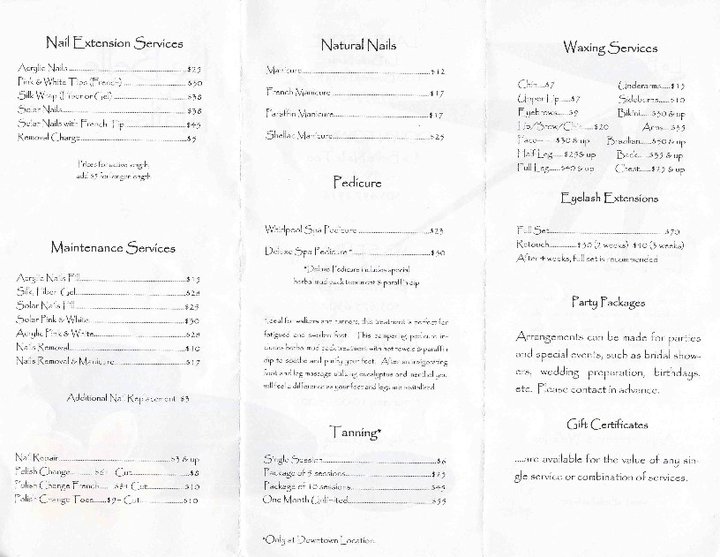 Nail Extension Services
Acrylic Nails $25
Pink & White Tips (French) $50
Silk Wrap (Fiber or Gel) $38
Solar Nails $38
Solar Nails with French Tip $45
Removal Charge $5
Prices for active length
add $5 for longer length
Maintenance Services
Acrylic Nails Fill $15
Silk Fiber Gel $28
Solar Nails Fill $25
Solar Pink & White $30
Acrylic Pink & White $28
Nails Removal $10
Nails Removal & Manicure $17
Additional Nail Replacement $3
Nail Repair $3 & up
Polish Change $6- Cut $8
Polish Change French $8- Cut $10
Polish Change Toes $9- Cut $10
Natural Nails
Manicure $12
French Manicure $17
Paraffin Manicure $17
Shellac Manicure $25
Pedicure
Whirlpool Spa Pedicure $23
Deluxe Spa Pedicure * $30
*Deluxe Pedicure includes special
herbal mud pack treatment & paraffin dip
*Ideal for walkers and runners, this treatment is perfect for
fatigued and swollen feet. This pampering pedicure in-
cludes herbal mud pack treatment with hot towels & paraffin
dip to soothe and purify your feet. After an invigorating
foot and leg massage utilizing eucalyptus and menthol you
will feel a difference as your feet and legs are revitalized.
Tanning*
Single Session $6
Package of 5 sessions $25
Package of 10 sessions $45
One Month Unlimited $55
*Only at Downtown Location
Waxing Services
Chin $7 Underarms $15
Upper Lip $7 Sideburns $10
Eyebrows $9 Bikini $30 & up
Lip/Brow/Chin $20 Arms $35
Face $30 & up Brazilian $50 & up
Half Leg $25 & up Back $35 & up
Full Leg $40 & up Chest $25 & up
Eyelash Extensions
Full Set $90
Retouch $30 (2 weeks) $40 (3 weeks)
After 4 weeks, full set is recommended
Party Packages
Arrangements can be made for parties
and special events, such as bridal show-
ers, wedding preparation, birthdays,
etc. Please contact in advance.
Gift Certificates
.....are available for the value of any sin-
gle service or combination of services.